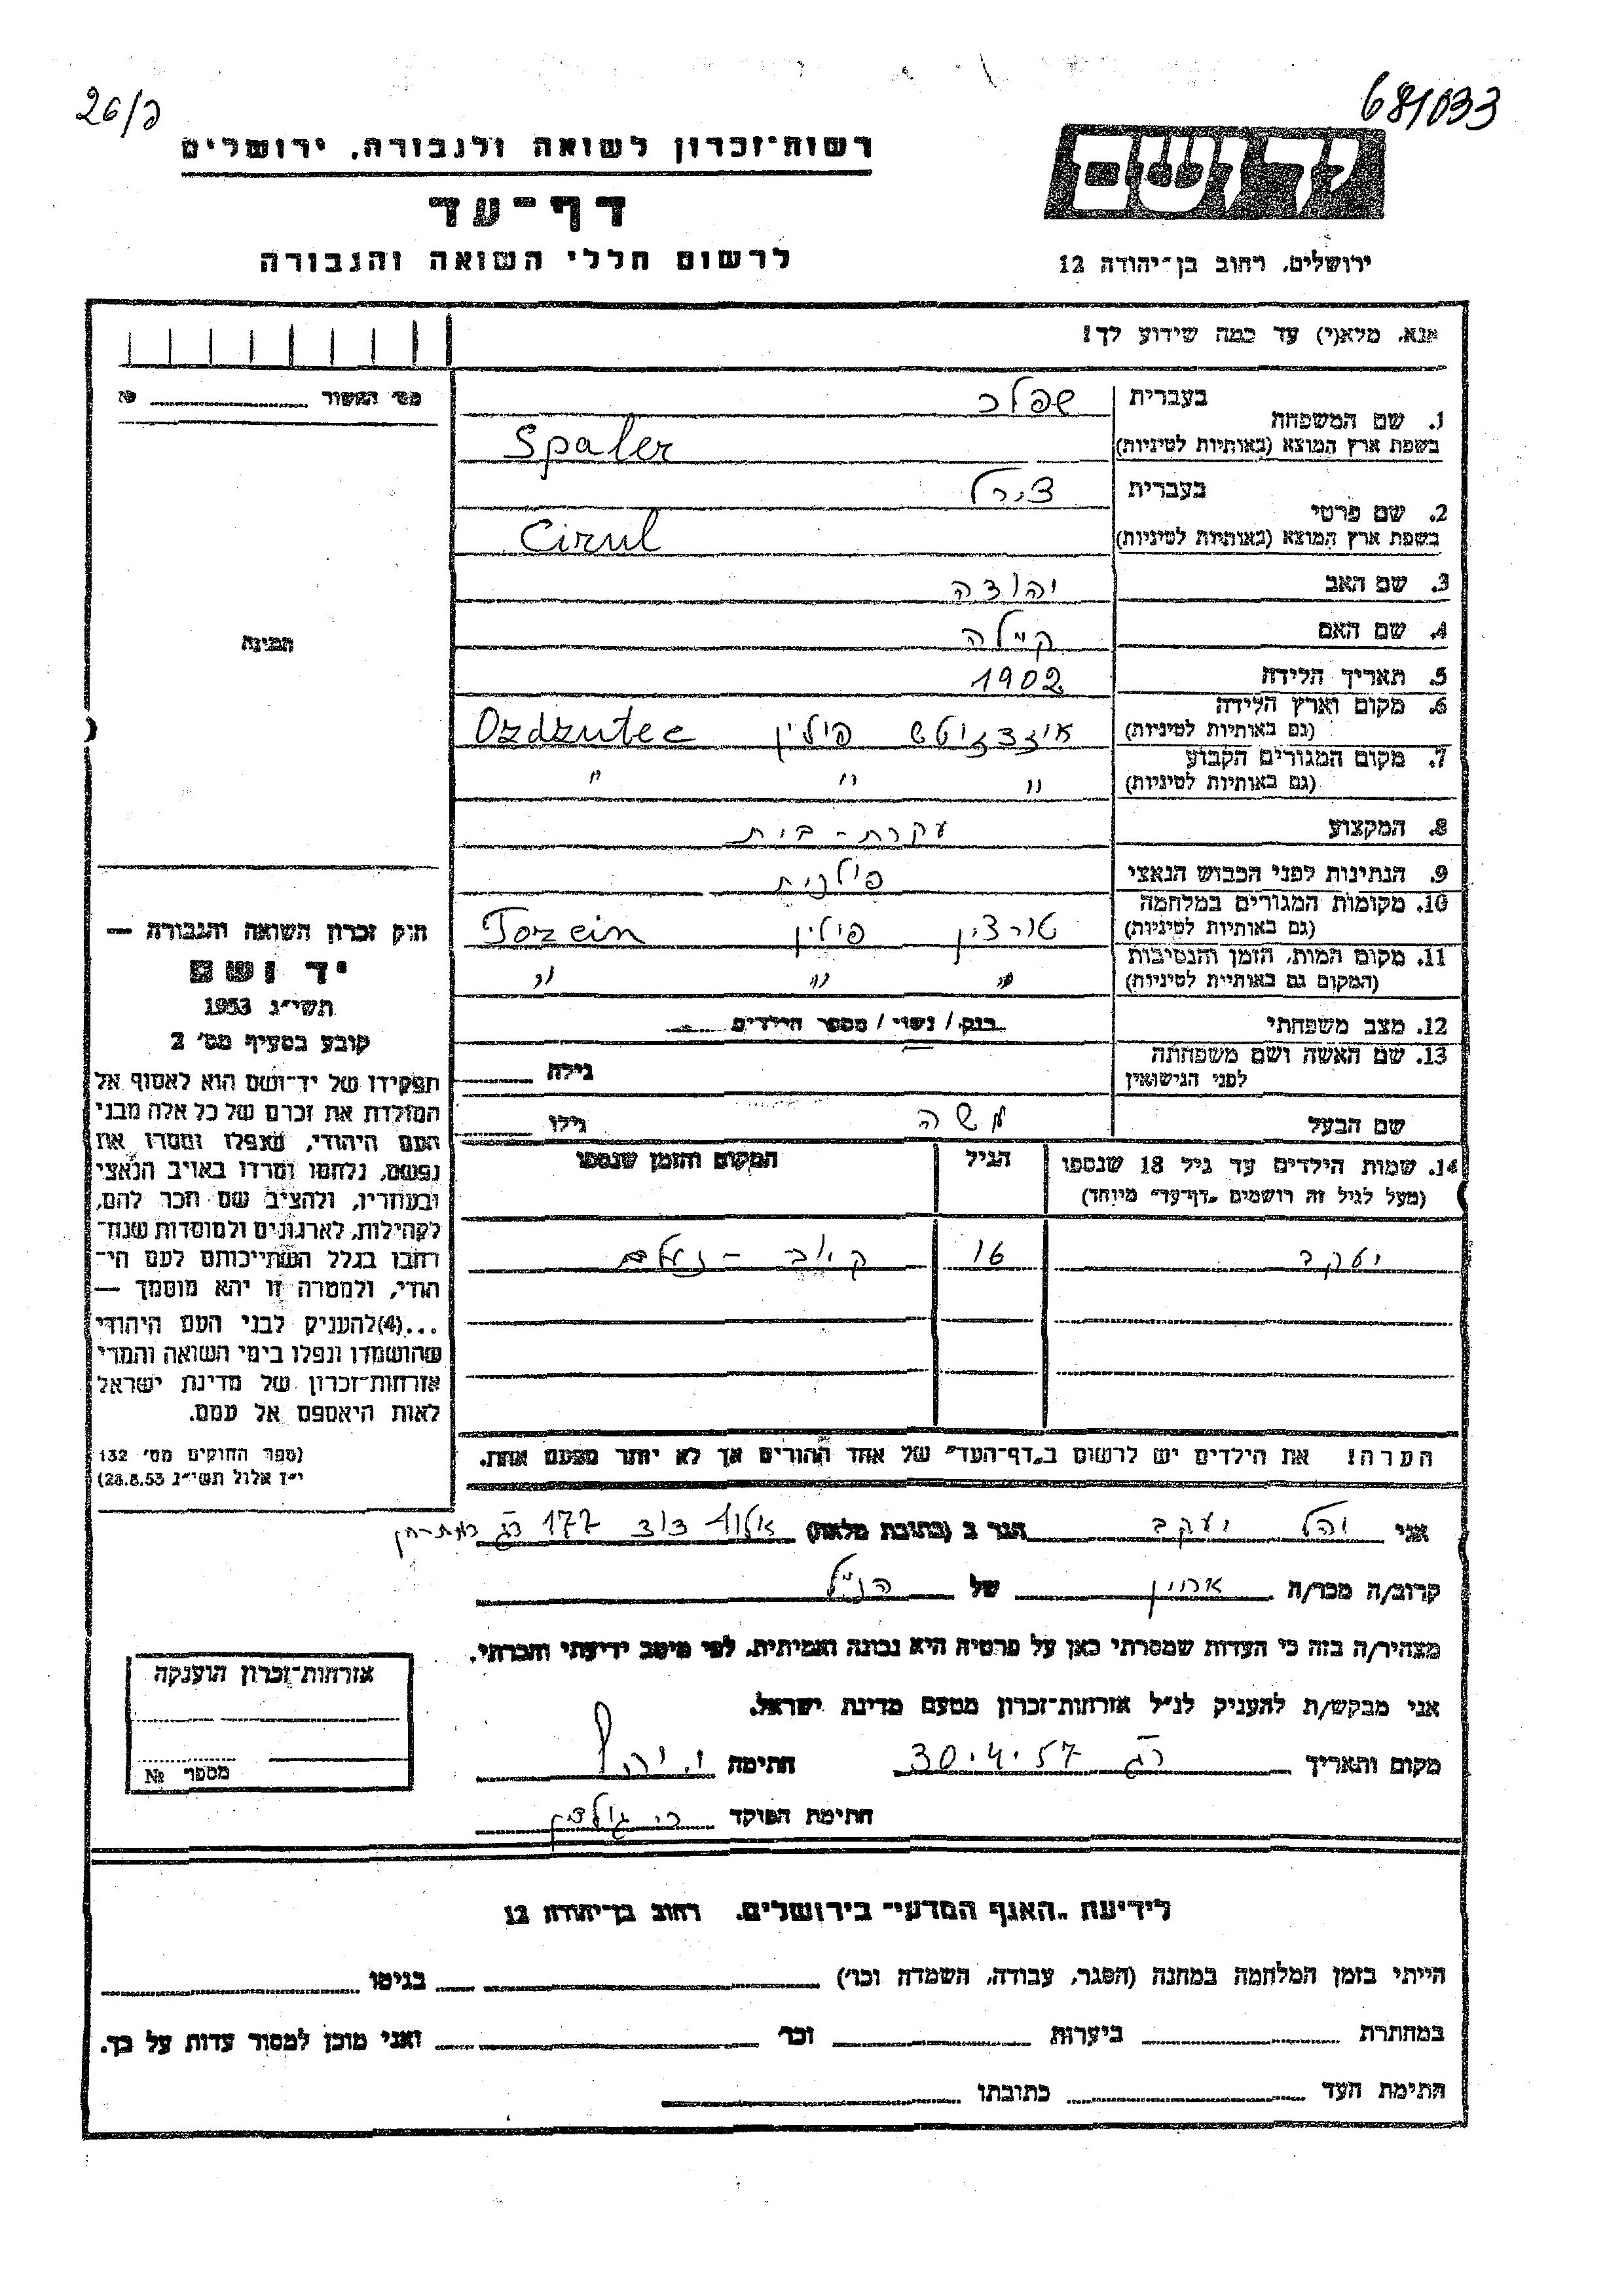 26/פ
681033
רשות-זכרון לשואה ולגבורה, ירושלים
דף-עד
לרשום חללי השואה והגבורה
יד ושם
ירושלים, רחוב בן-יהודה 12
אנא, מלא(י) עד כמה שידוע לך!
מס' האשור № 
1. שם המשפחה בעברית שפלר
בשפת ארץ המוצא (באותיות לטיניות) Spaler
2. שם פרטי בעברית צירל
בשפת ארץ המוצא (באותיות לטיניות) Cirul
3. שם האב יהודה
4. שם האם קיילה
5. תאריך הלידה 1902
6. מקום וארץ הלידה (גם באותיות לטיניות) פולין Ozdzutec
7. מקום המגורים הקבוע (גם באותיות לטיניות) " " "
8. המקצוע עקרת-בית
9. הנתינות לפני הכבוש הנאצי פולנית
10. מקומות המגורים במלחמה (גם באותיות לטיניות) טורצין פולין Torzein
11. מקום המות, הזמן והנסיבות (המקום גם באותיות לטיניות) " " "
12. מצב משפחתי רווק / נשוי / מספר הילדים
13. שם האשה ושם משפחתה לפני הנישואין גילה
שם הבעל משה גילו
14. שמות הילדים עד גיל 18 שנספו הגיל המקום והזמן שנספו
(מעל לגיל זה רושמים "דף-עד" מיוחד)
יעקב 16
הערה! את הילדים יש לרשום ב"דף-העד" של אחד ההורים אך לא יותר מפעם אחת.
התמונה
חוק זכרון השואה והגבורה —
יד ושם
תשי"ג 1953
קובע בסעיף מס' 2
תפקידו של יד-ושם הוא לאסוף אל
המולדת את זכרם של כל אלה מבני
העם היהודי, שנפלו ומסרו את
נפשם, נלחמו ומרדו באויב הנאצי
ובעוזריו, ולהציב שם וזכר להם,
לקהילות, לארגונים ולמוסדות שנח-
רבו בגלל השתייכותם לעם הי-
הודי, ולמטרה זו יהא מוסמך —
...(4) להעניק לבני העם היהודי
שהושמדו ונפלו בימי השואה והמרי
אזרחות-זכרון של מדינת ישראל
לאות היאספם אל עמם.
(ספר החוקים מס' 132
י"ז אלול תשי"ג 28.8.53)
אני יהל יעקב הגר ב (כתובת מלאה) 177 רג
קרוב/ה מכר/ה אחיין של הנ"ל
מצהיר/ה בזה כי העדות שמסרתי כאן על פרטיה היא נכונה ואמיתית, לפי מיטב ידיעתי והכרתי.
אני מבקש/ת להעניק לנ"ל אזרחות-זכרון מטעם מדינת ישראל.
מקום ותאריך רג 30.4.57 חתימה י. יהל
חתימת הפוקד
אזרחות-זכרון הוענקה
מספר №
לידיעת "האגף המדעי" בירושלים, רחוב בן-יהודה 12
הייתי בזמן המלחמה במחנה (הסגר, עבודה, השמדה וכו') בגיטו
במחתרת ביערות וכו' ואני מוכן למסור עדות על כך.
חתימת העד כתובתו